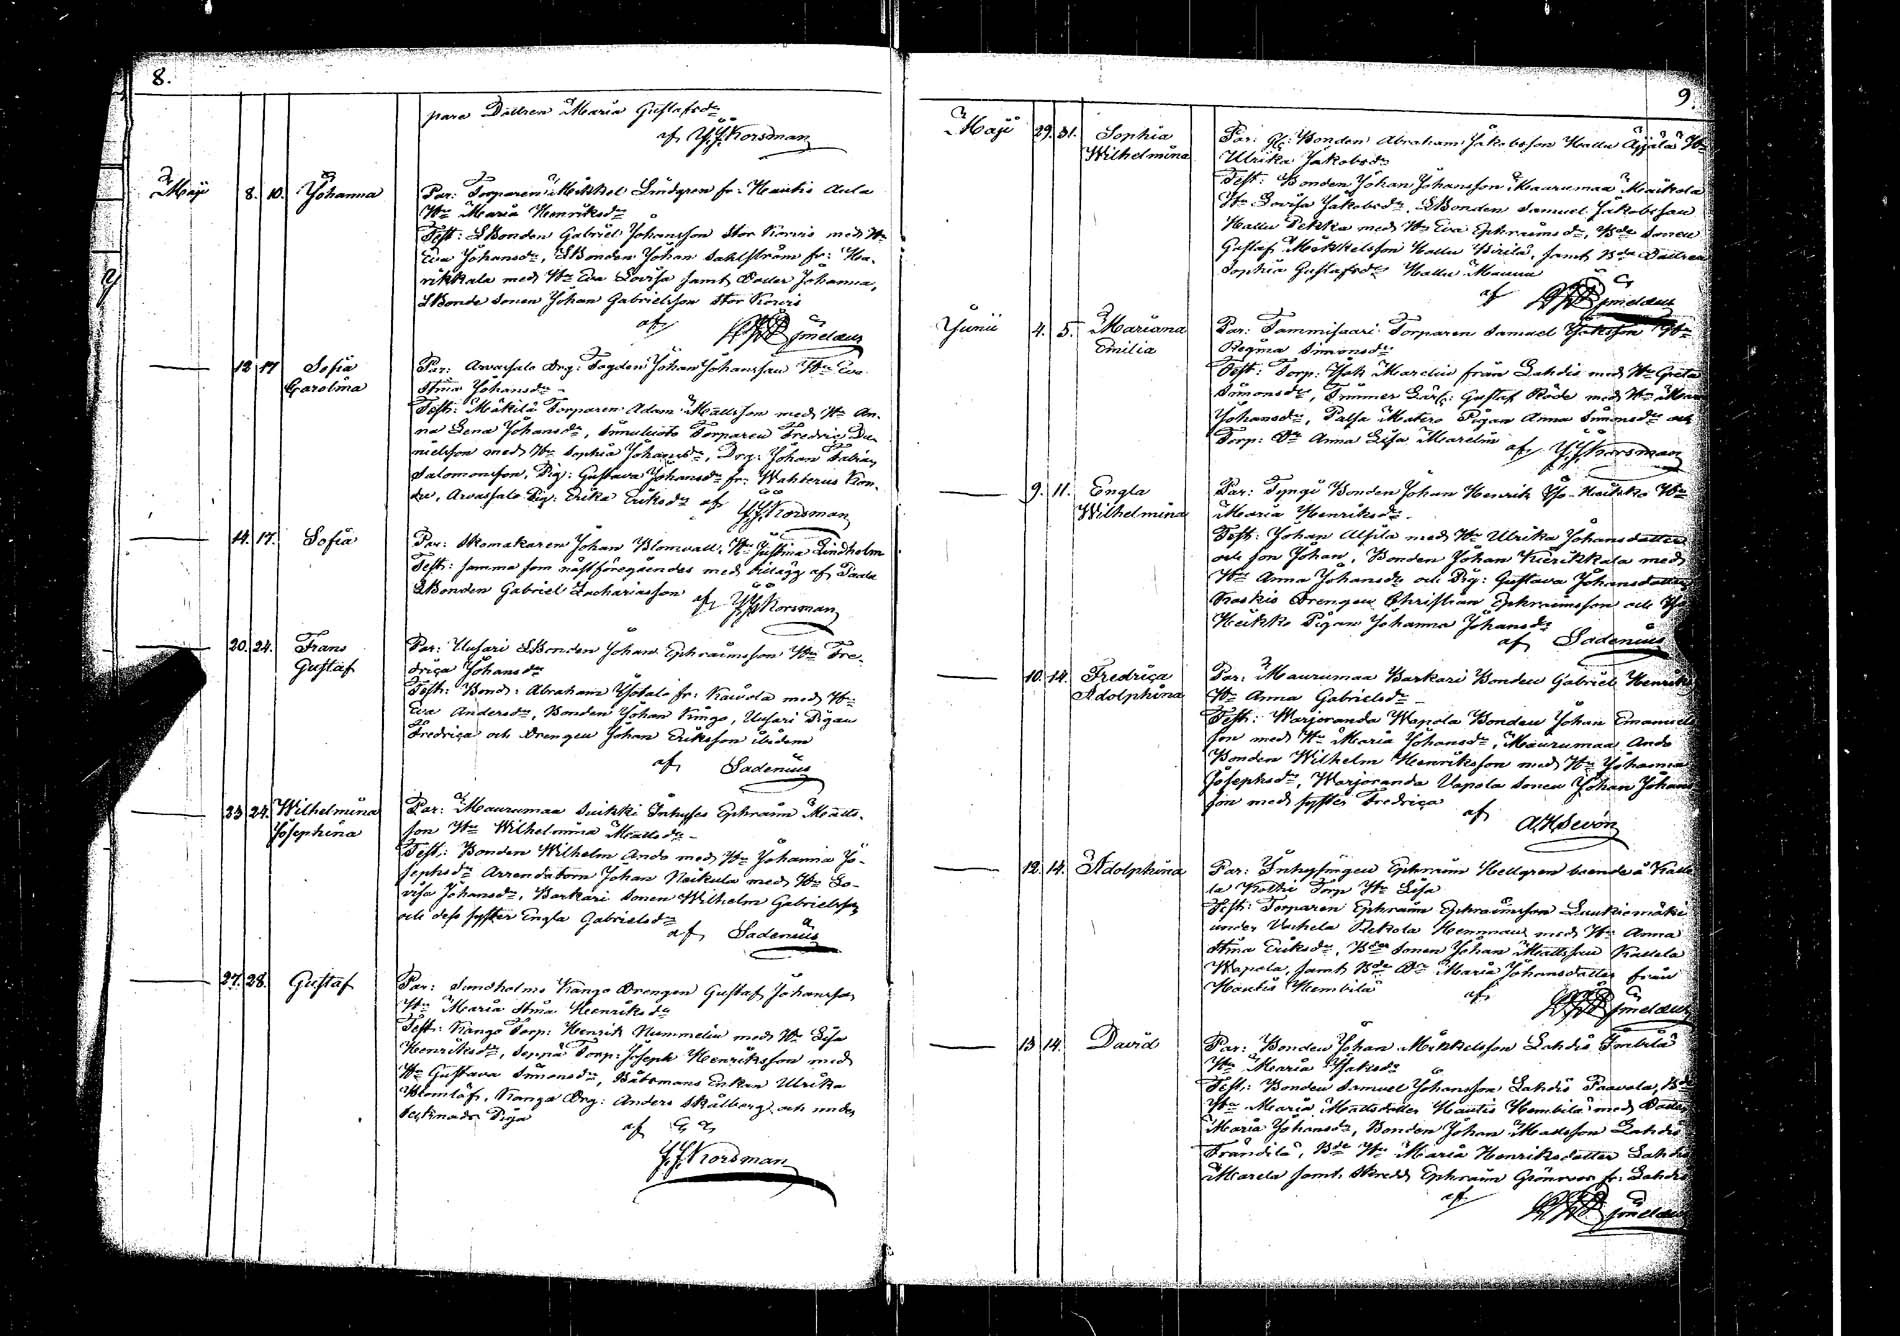 8.
para Dottren Maria Gustafsdr
af J. J. Korsman
Maji 8. 10. Johanna
Par: Torparen Mickkel Lindgren fr: Hautis Aula
Hu Maria Henriksdr
Test: SBonden Gabriel Johansson Stor Korvis med Hu
Eva Johansdr, SBonden Johan Sahlström fr: Ha-
rikkala med Hu Eva Lovisa samt Dotter Johanna,
SBonde Sonen Johan Gabrielsson Stor Korvis
af
12 17 Sofia Carolina
Par: Arvassalo Drg: Fogden Johan Johansson Hu Eva
Stina Johansdr
Test: Mäkilä Torparen Adam Mattsson med Hu An-
na Lena Johansdr, Torparen Fredric Da-
nielsson med Hu Sophia Johansdr, Drg: Johan Fabian
Salomonsson, Pig: Gustava Johansdr fr: Wahterus
Arvassalo Pig: Erika Eriksdr af J. J. Korsman
14. 17. Sofia
Par: Skomakaren Johan Blomvall, Hu Justina Lindholm
Test: samma som nästföregående med tillägg af
SBonden Gabriel Zachariasson
af J. J. Korsman
20. 24. Frans Gustaf
Par: Uusari SBonden Johan Ephraimsson Hu Fre-
drica Johansdr
Test: Bond: Abraham Isotalo fr: Kaivola med Hu
Eva Andersdr, Bonden Johan Kingo, Uusari Pigan
Fredrica och Drengen Johan Eriksson ibidem
af Sadenius
23 24. Wilhelmina Josephina
Par: Maurumaa Suikki Inhyses Ephraim Matts-
son Hu Wilhelmina Mattsdr
Test: Bonden Wilhelm Ando med Hu Johanna Jo-
sephsdr Arrendatorn Johan Naikula med Hu Lo-
visa Johansdr, Barkari Sonen Wilhelm Gabrielsson
och dess syster Engla Gabrielsdr
af Sadenius
27. 28. Gustaf
Par: Sundholms Kango Drengen Gustaf Johansson
Hu Maria Stina Henriksdr
Test: Kango Torp: Henrik Nummelin med Hu Lisa
Henriksdr, Seppä Torp: Joseph Henriksson med
Hu Gustava Simonsdr, Båtsmans Enkan Ulrika
Blomlöf, Kango Drg: Anders Skålberg och under
tecknads Piga
af
J. J. Korsman
9.
Maji 29. 31. Sophia Wilhelmina
Par: Bonden Abraham Jakobsson Hallu Äijälä Hu
Ulrika Jakobsdr
Test: Bonden Johan Johansson Maurumaa Maikola
Hu Lovisa Jakobsdr, SBonden Samuel Jakobsson
Hallu Pekka med Hu Eva Ephraimsdr, Bde Sonen
Gustaf Mickkelsson Hallu Pirilä, samt Bde Dottren
Sophia Gustafsdr Hallu Mauna
af
Junii 4. 5. Mariana Emilia
Par: Tammisaari Torparen Samuel Isaksson Hu
Regina Simonsdr
Test: Torp: Isak Marelin från Lahdis med Hu Greta
Simonsdr, Timmer Gustaf Röde med Hu
Johansdr, Palsa Matero Pigan Anna Simonsdr och
Torp: Dr Anna Lisa Marelin af J. J. Korsman
9. 11. Engla Wilhelmina
Par: Tyngi Bonden Johan Henrik Iso-Heikko Hu
Maria Henriksdr
Test: Johan Alsila med Hu Ulrika Johansdotter
och son Johan, Bonden Johan Kierikkala med
Hu Anna Johansdr och Pig: Gustava Johansdotter
Koskis Drengen Christian Ephraimsson och Iso
Heikko Pigan Johanna Johansdr
af Sadenius
10. 14. Fredrica Adolphina
Par: Maurumaa Barkari Bonden Gabriel Henriks
Hu Anna Gabrielsdr
Test: Warjoranda Wapola Bonden Johan Emanuels
son med Hu Maria Johansdr, Maurumaa Ando
Bonden Wilhelm Henriksson med Hu Johanna
Josephsdr, Warjoranda Vapola Sonen Johan Johans
son med syster Fredrica
af
A. H. Sevón
12. 14. Adolphina
Par: Inhysingen Ephraim Hellgren boende å Kalle
la Kothi Torp Hu Lisa
Test: Torparen Ephraim Ephraimsson Luukismäki
under Vuohela Pietola Hemman med Hu Anna
Stina Eriksdr, Bde Sonen Johan Mattsson Kallela
Wapola, samt Bde Dr Maria Johansdotter från
Hautis Hembilä
af
13 14. David
Par: Bonden Johan Mickkelsson Lahdis Imbilä
Hu Maria Isaksdr
Test: Bonden Samuel Johansson Lahdis Paavola, Bde
Hu Maria Mattsdotter Hautis Hembilä med Dotter
Maria Johansdr, Bonden Johan Mattsson Lahdis
Frändilä, Bde Hu Maria Henriksdotter Lahdis
Marela samt Skredd Ephraim Grönroos fr: Lahdis
af